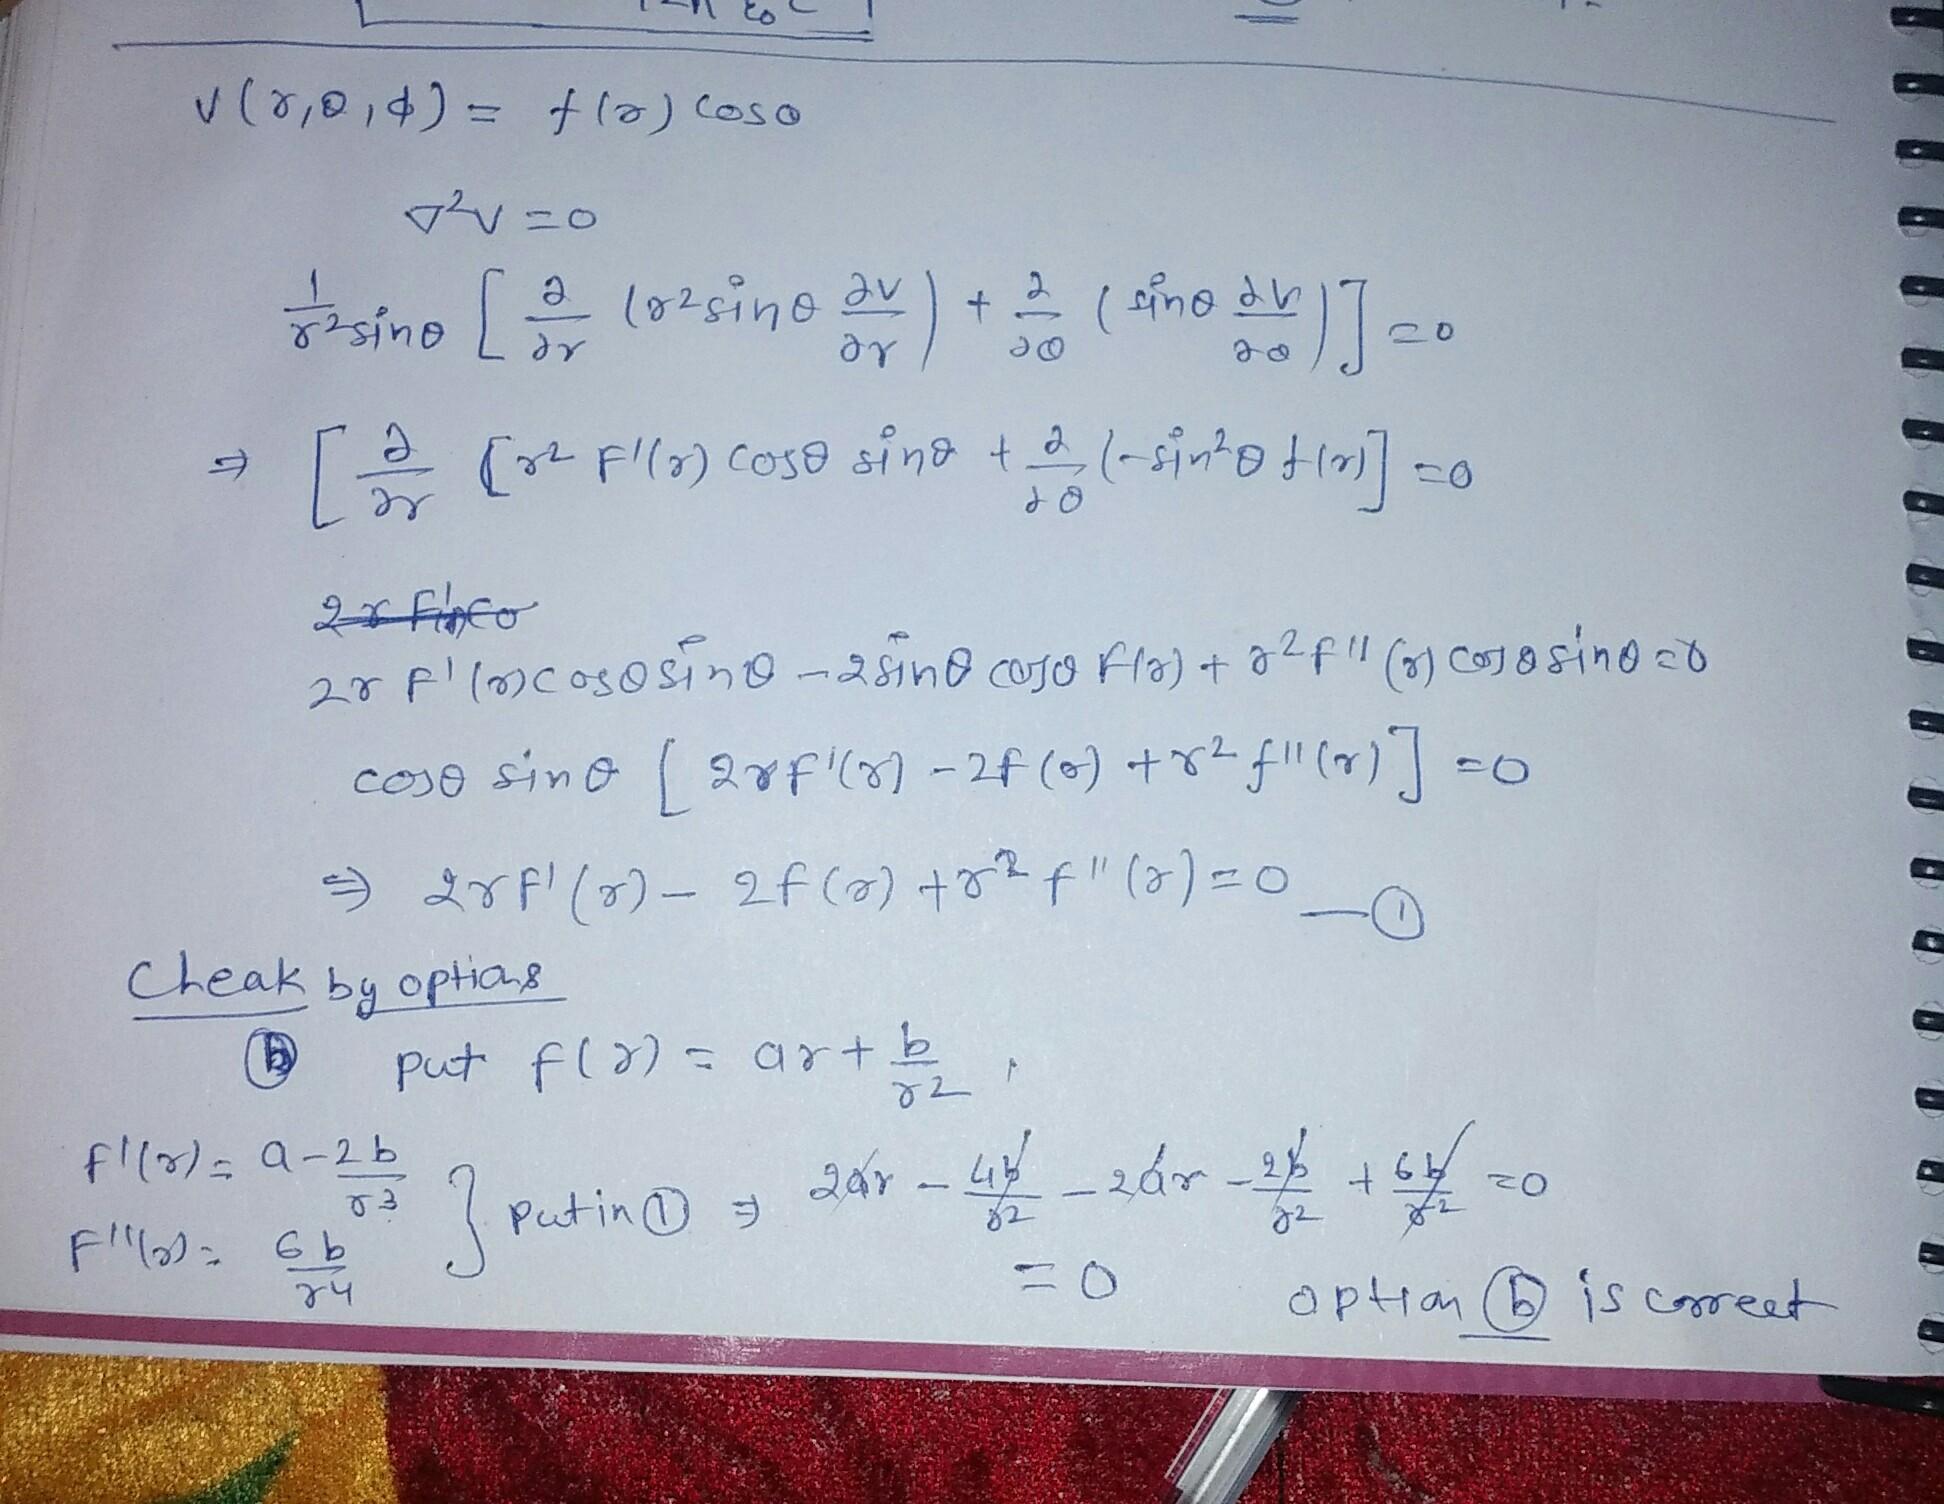 V(r,θ,ϕ) = f(r) cosθ
∇²V = 0
1/r²sinθ [ ∂/∂r (r²sinθ ∂V/∂r) + ∂/∂θ (sinθ ∂V/∂θ)] = 0
⇒ [ ∂/∂r [r² F'(r) cosθ sinθ + ∂/∂θ (-sin²θ f(r)] = 0
2r F'(r)cosθsinθ - 2sinθ cosθ F(r) + r²F''(r) cosθsinθ = 0
cosθ sinθ [ 2rF'(r) - 2F(r) + r² f''(r) ] = 0
⇒ 2rF'(r) - 2f(r) + r² f''(r) = 0 — ①
Cheak by options
ⓑ put f(r) = ar + b/r²,
F'(r) = a - 2b/r³
F''(r) = 6b/r4 } put in ① ⇒ 2ar - 4b/r² - 2ar - 2b/r² + 6b/r² = 0
= 0 option ⓑ is correct